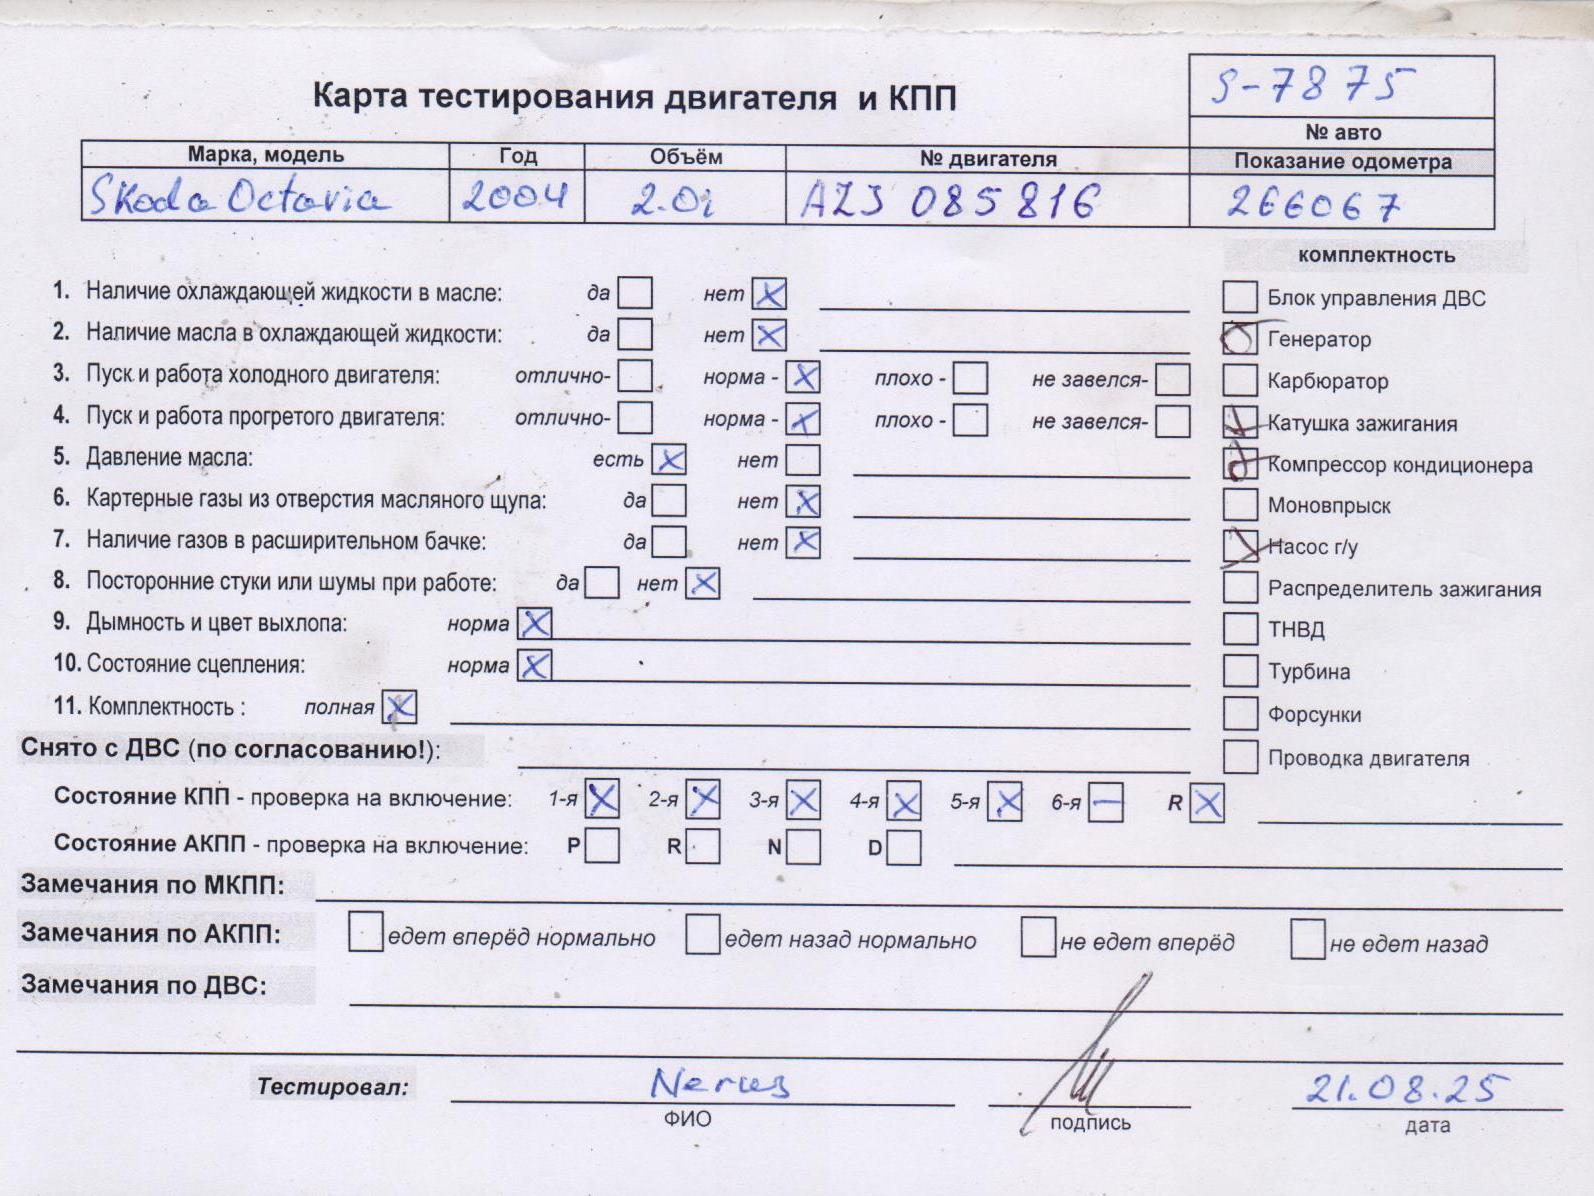 Карта тестирования двигателя и КПП
S-7875
№ авто
Марка, модель Год Объём № двигателя Показание одометра
Skoda Octavia 2004 2.0i AZJ 085816 266067
комплектность
1. Наличие охлаждающей жидкости в масле: да нет X
Блок управления ДВС
2. Наличие масла в охлаждающей жидкости: да нет X
Генератор
3. Пуск и работа холодного двигателя: отлично- норма - X плохо - не завелся-
Карбюратор
4. Пуск и работа прогретого двигателя: отлично- норма - X плохо - не завелся-
Катушка зажигания
5. Давление масла: есть X нет
Компрессор кондиционера
6. Картерные газы из отверстия масляного щупа: да нет X
Моновпрыск
7. Наличие газов в расширительном бачке: да нет X
Насос г/у
8. Посторонние стуки или шумы при работе: да нет X
Распределитель зажигания
9. Дымность и цвет выхлопа: норма X
ТНВД
10. Состояние сцепления: норма X
Турбина
11. Комплектность : полная X
Форсунки
Снято с ДВС (по согласованию!):
Проводка двигателя
Состояние КПП - проверка на включение: 1-я X 2-я X 3-я X 4-я X 5-я X 6-я — R X
Состояние АКПП - проверка на включение: P R N D
Замечания по МКПП:
Замечания по АКПП: едет вперёд нормально едет назад нормально не едет вперёд не едет назад
Замечания по ДВС:
Тестировал: 21.08.25
ФИО подпись дата